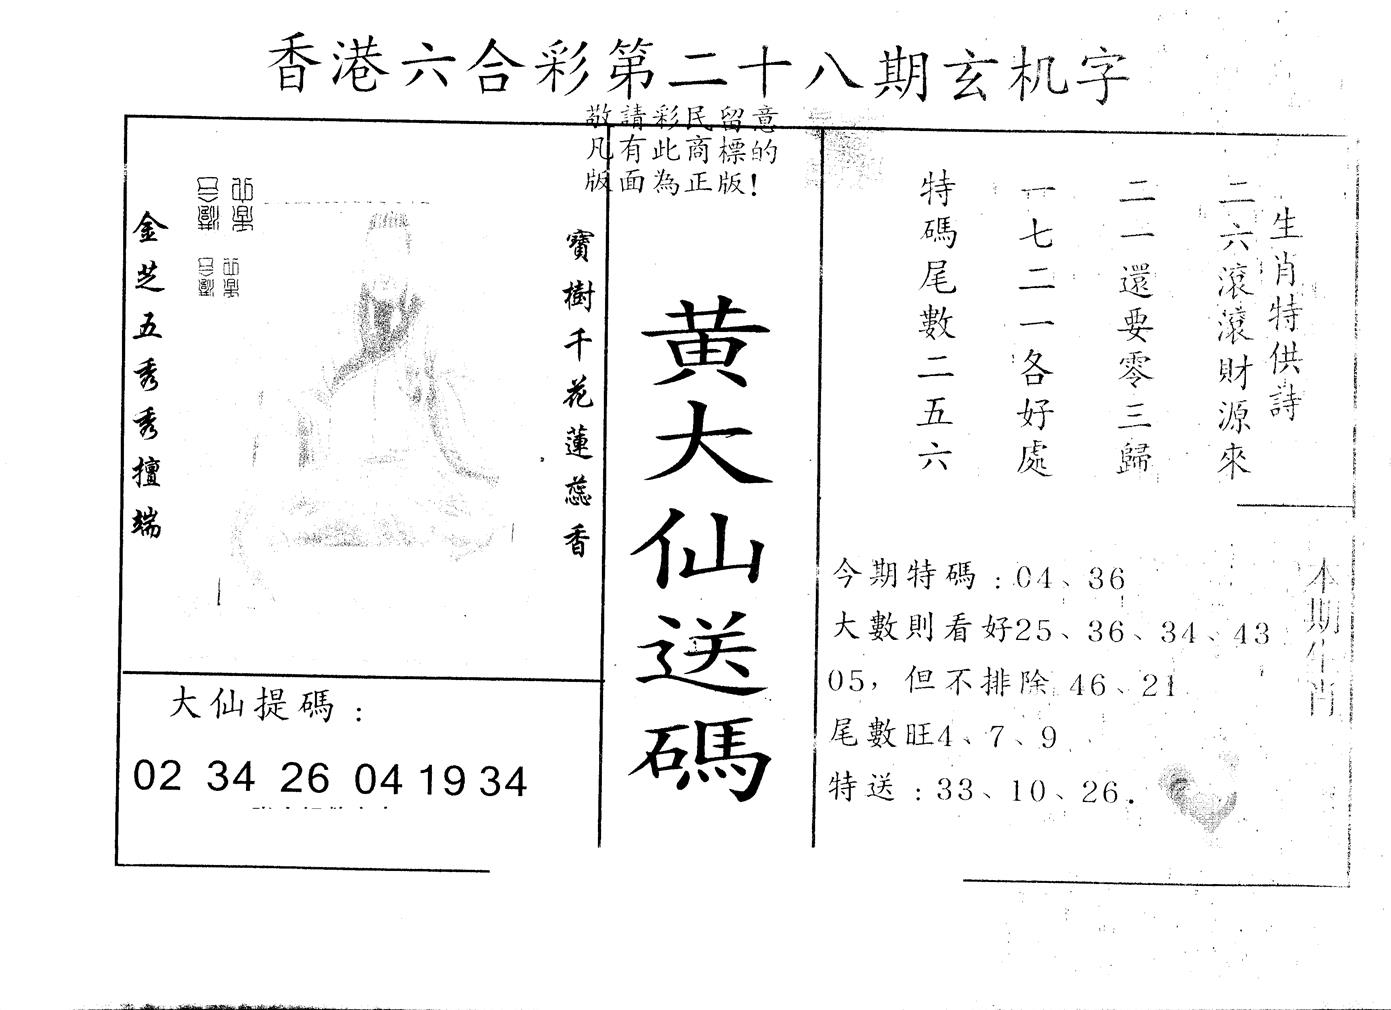 香港六合彩第二十八期玄机字
敬請彩民留意
凡有此商標的
版面為正版!
金芝五秀秀擅端
寶樹千花蓮蕊香
黄大仙送碼
生肖特供詩
二六滾滾財源來
二一還要零三歸
一七二一各好處
特碼尾數二五六
大仙提碼:
02 34 26 04 19 34
本期生肖
今期特碼:04、36
大數則看好25、36、34、43
05，但不排除 46、21
尾數旺4、7、9
特送:33、10、26.